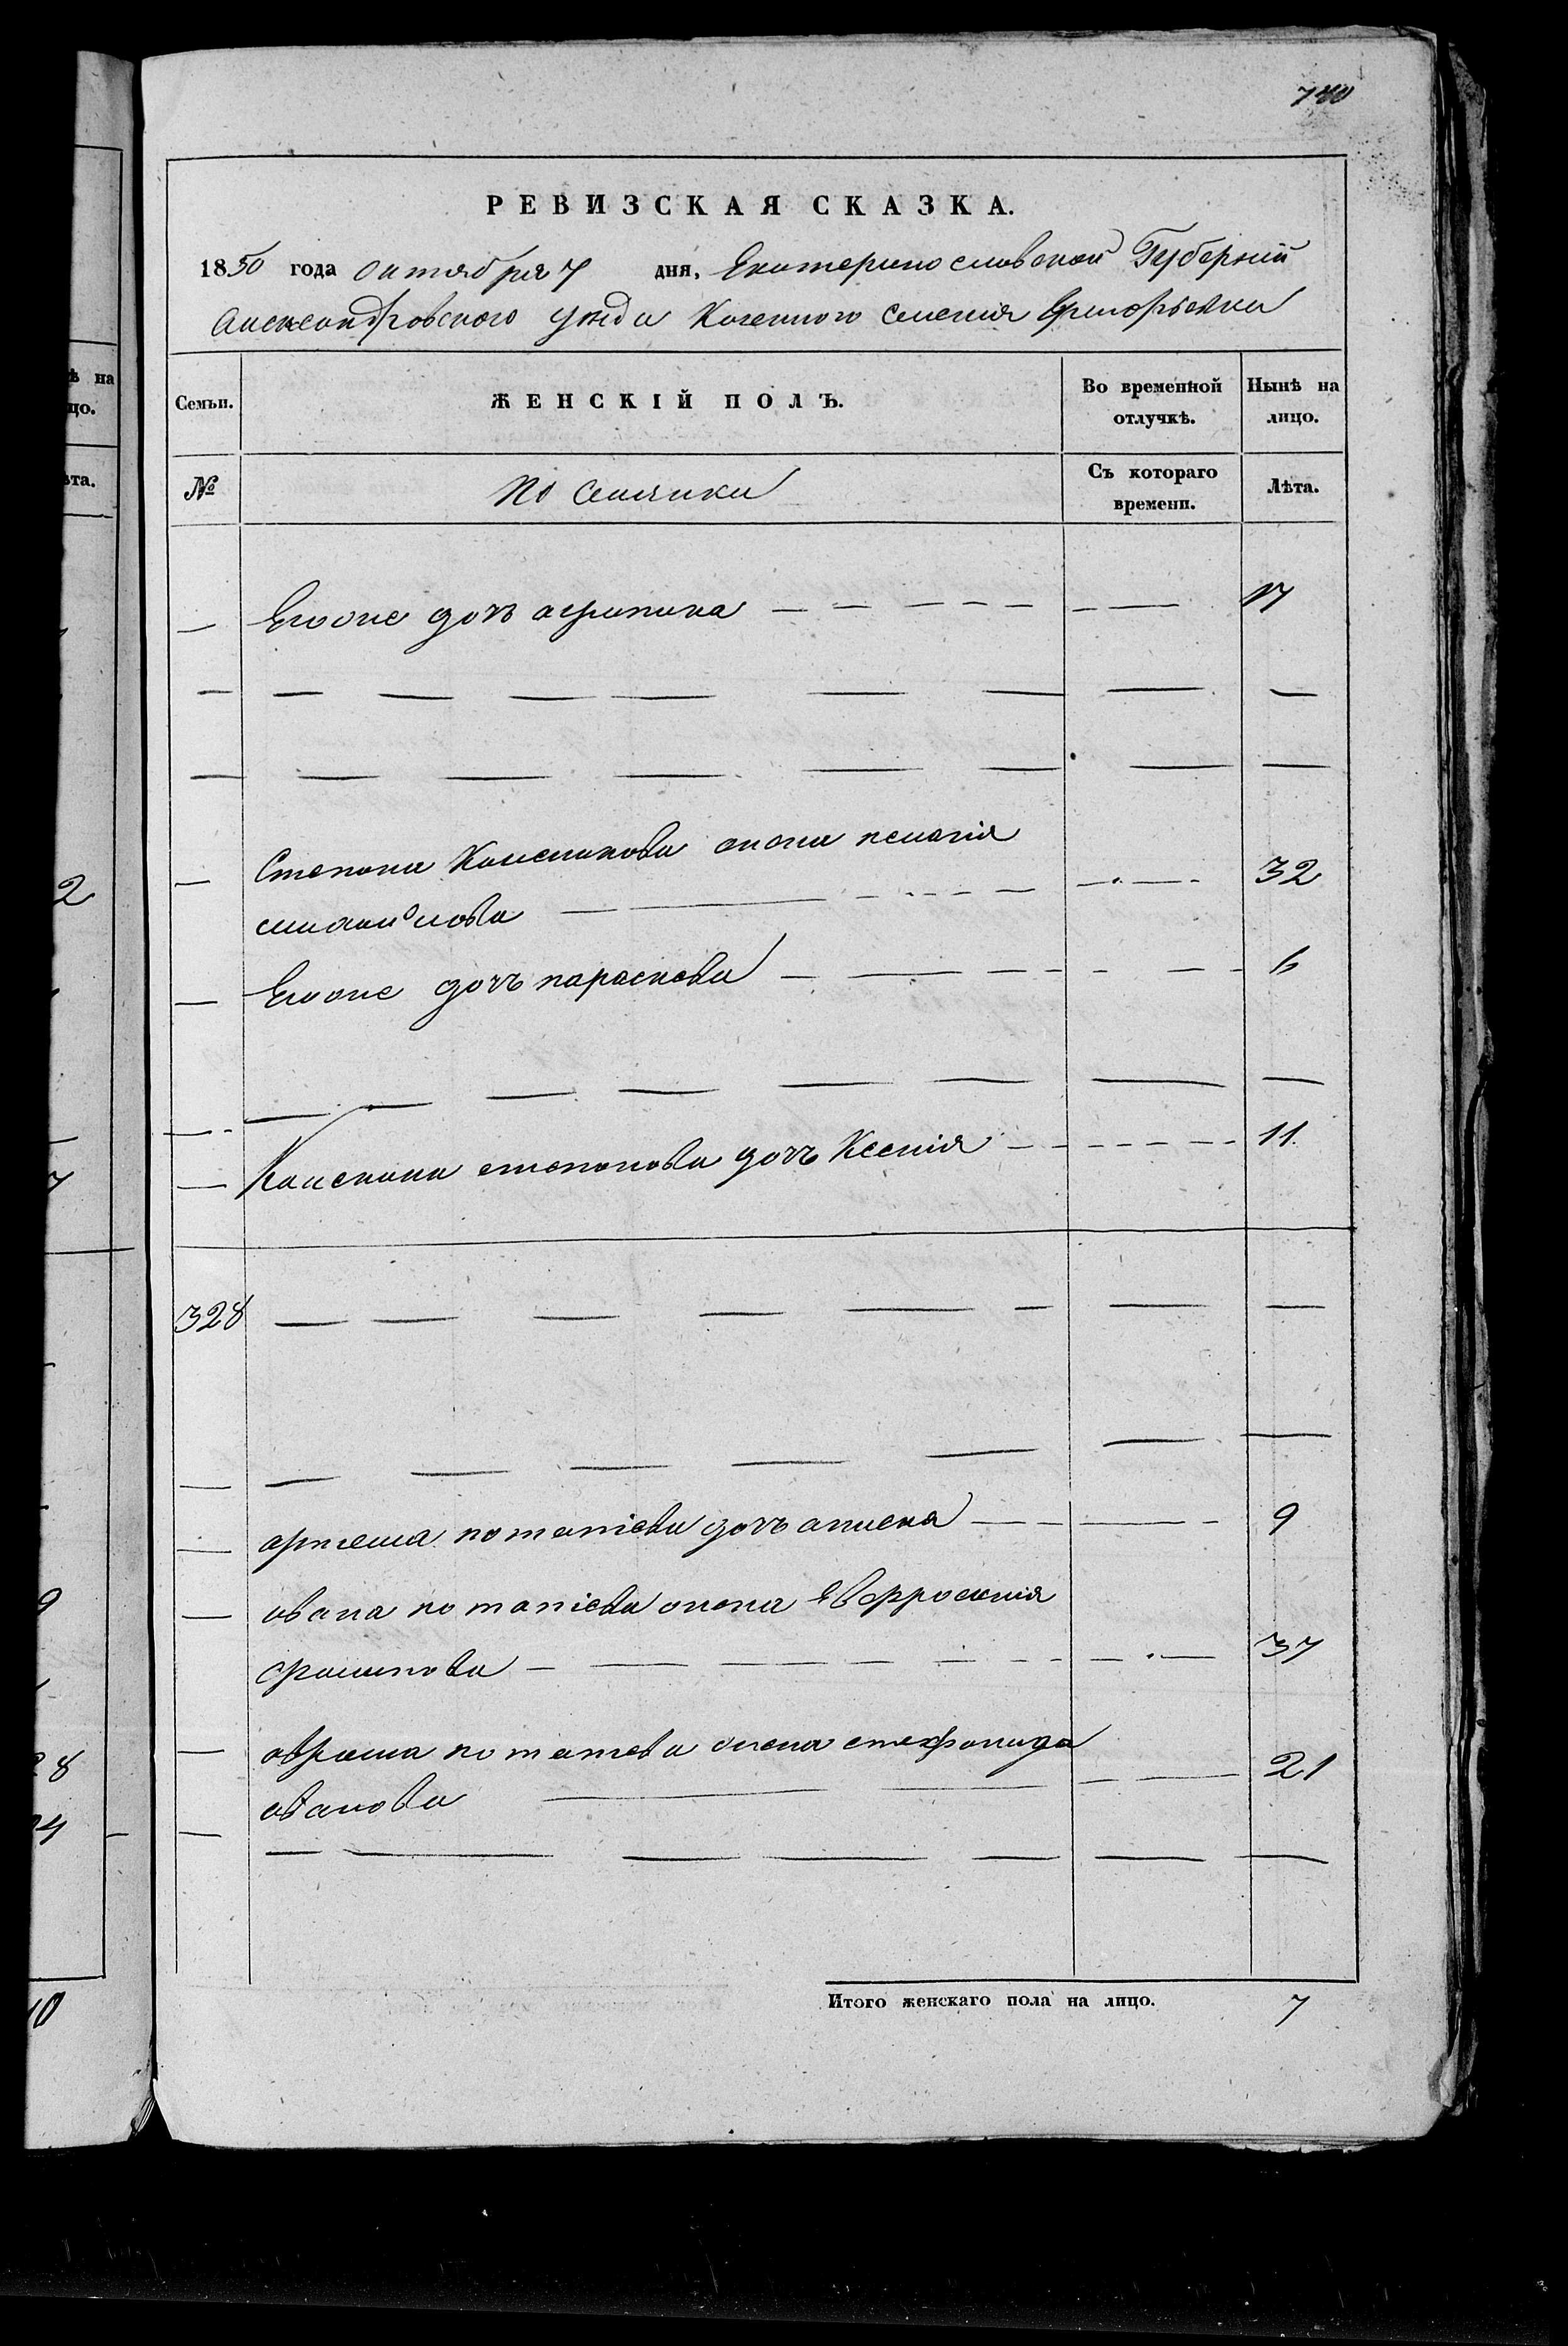 740
РЕВИЗСКАЯ СКАЗКА.
1850 года октября 7 дня, Екатеринославской Губерніи
Александровского уезда Казенного селенія Григорьевки
Семьи.
ЖЕНСКІЙ ПОЛЪ.
Во временной отлучкѣ.
Нынѣ на лицо.
№
Съ котораго времени.
Лѣта.
— Егоже дочь агрипина — — — 17
— — — — — — — —
— — — — — — — —
— Степана жона пелагія
— — — 32
— Егоже дочь параскева — — — 6
— — — — — — — —
— степанова дочь Ксенія — — — 11
328 — — — — — — —
— — — — — — — —
— артема потапіева дочь — — — 9
— ивана потапіева жона Евфросинія
— — — 37
— абрама потапіева жена степанида
иванова — — — 21
— — — — — — — —
Итого женскаго пола на лицо. 7
ѣ на
цо.
ѣта.
2
7
9
28
24
10